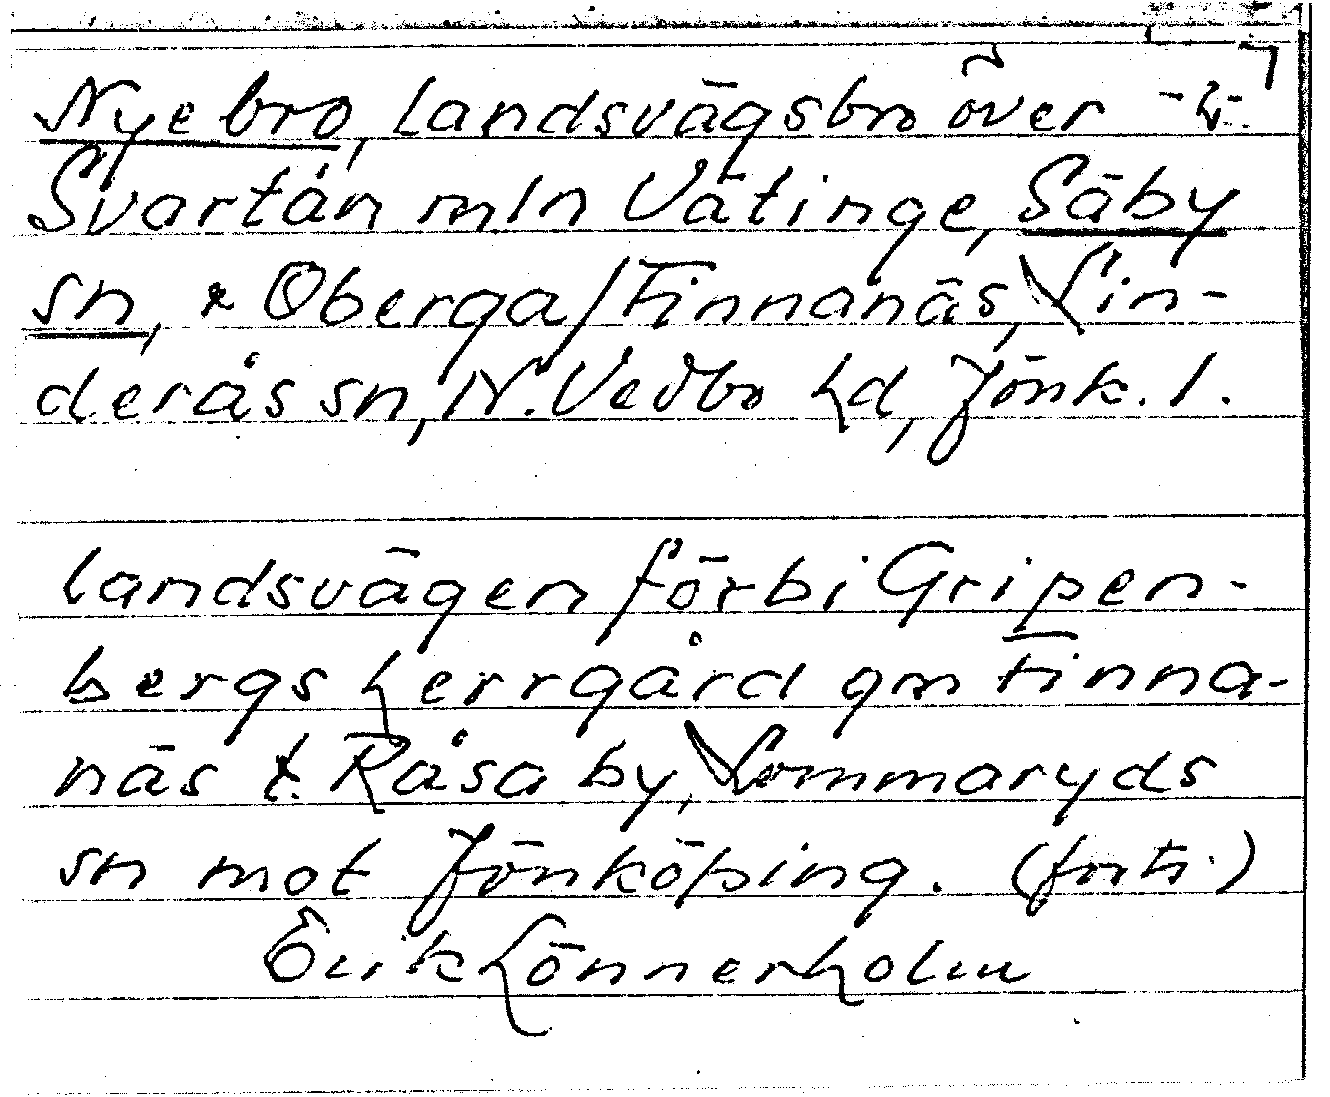 Nye bro, landsvägsbro över
Svartån mln Vätinge, Säby
sn, & Oberga/Finnanäs, Lin-
derås sn, N. Vedbo hd, Jönk. l.
landsvägen förbi Gripen-
bergs herrgård gm Finna-
näs t. Råsa by, Lommaryds
sn mot Jönköping. (forts.)
Erik Lönnerholm